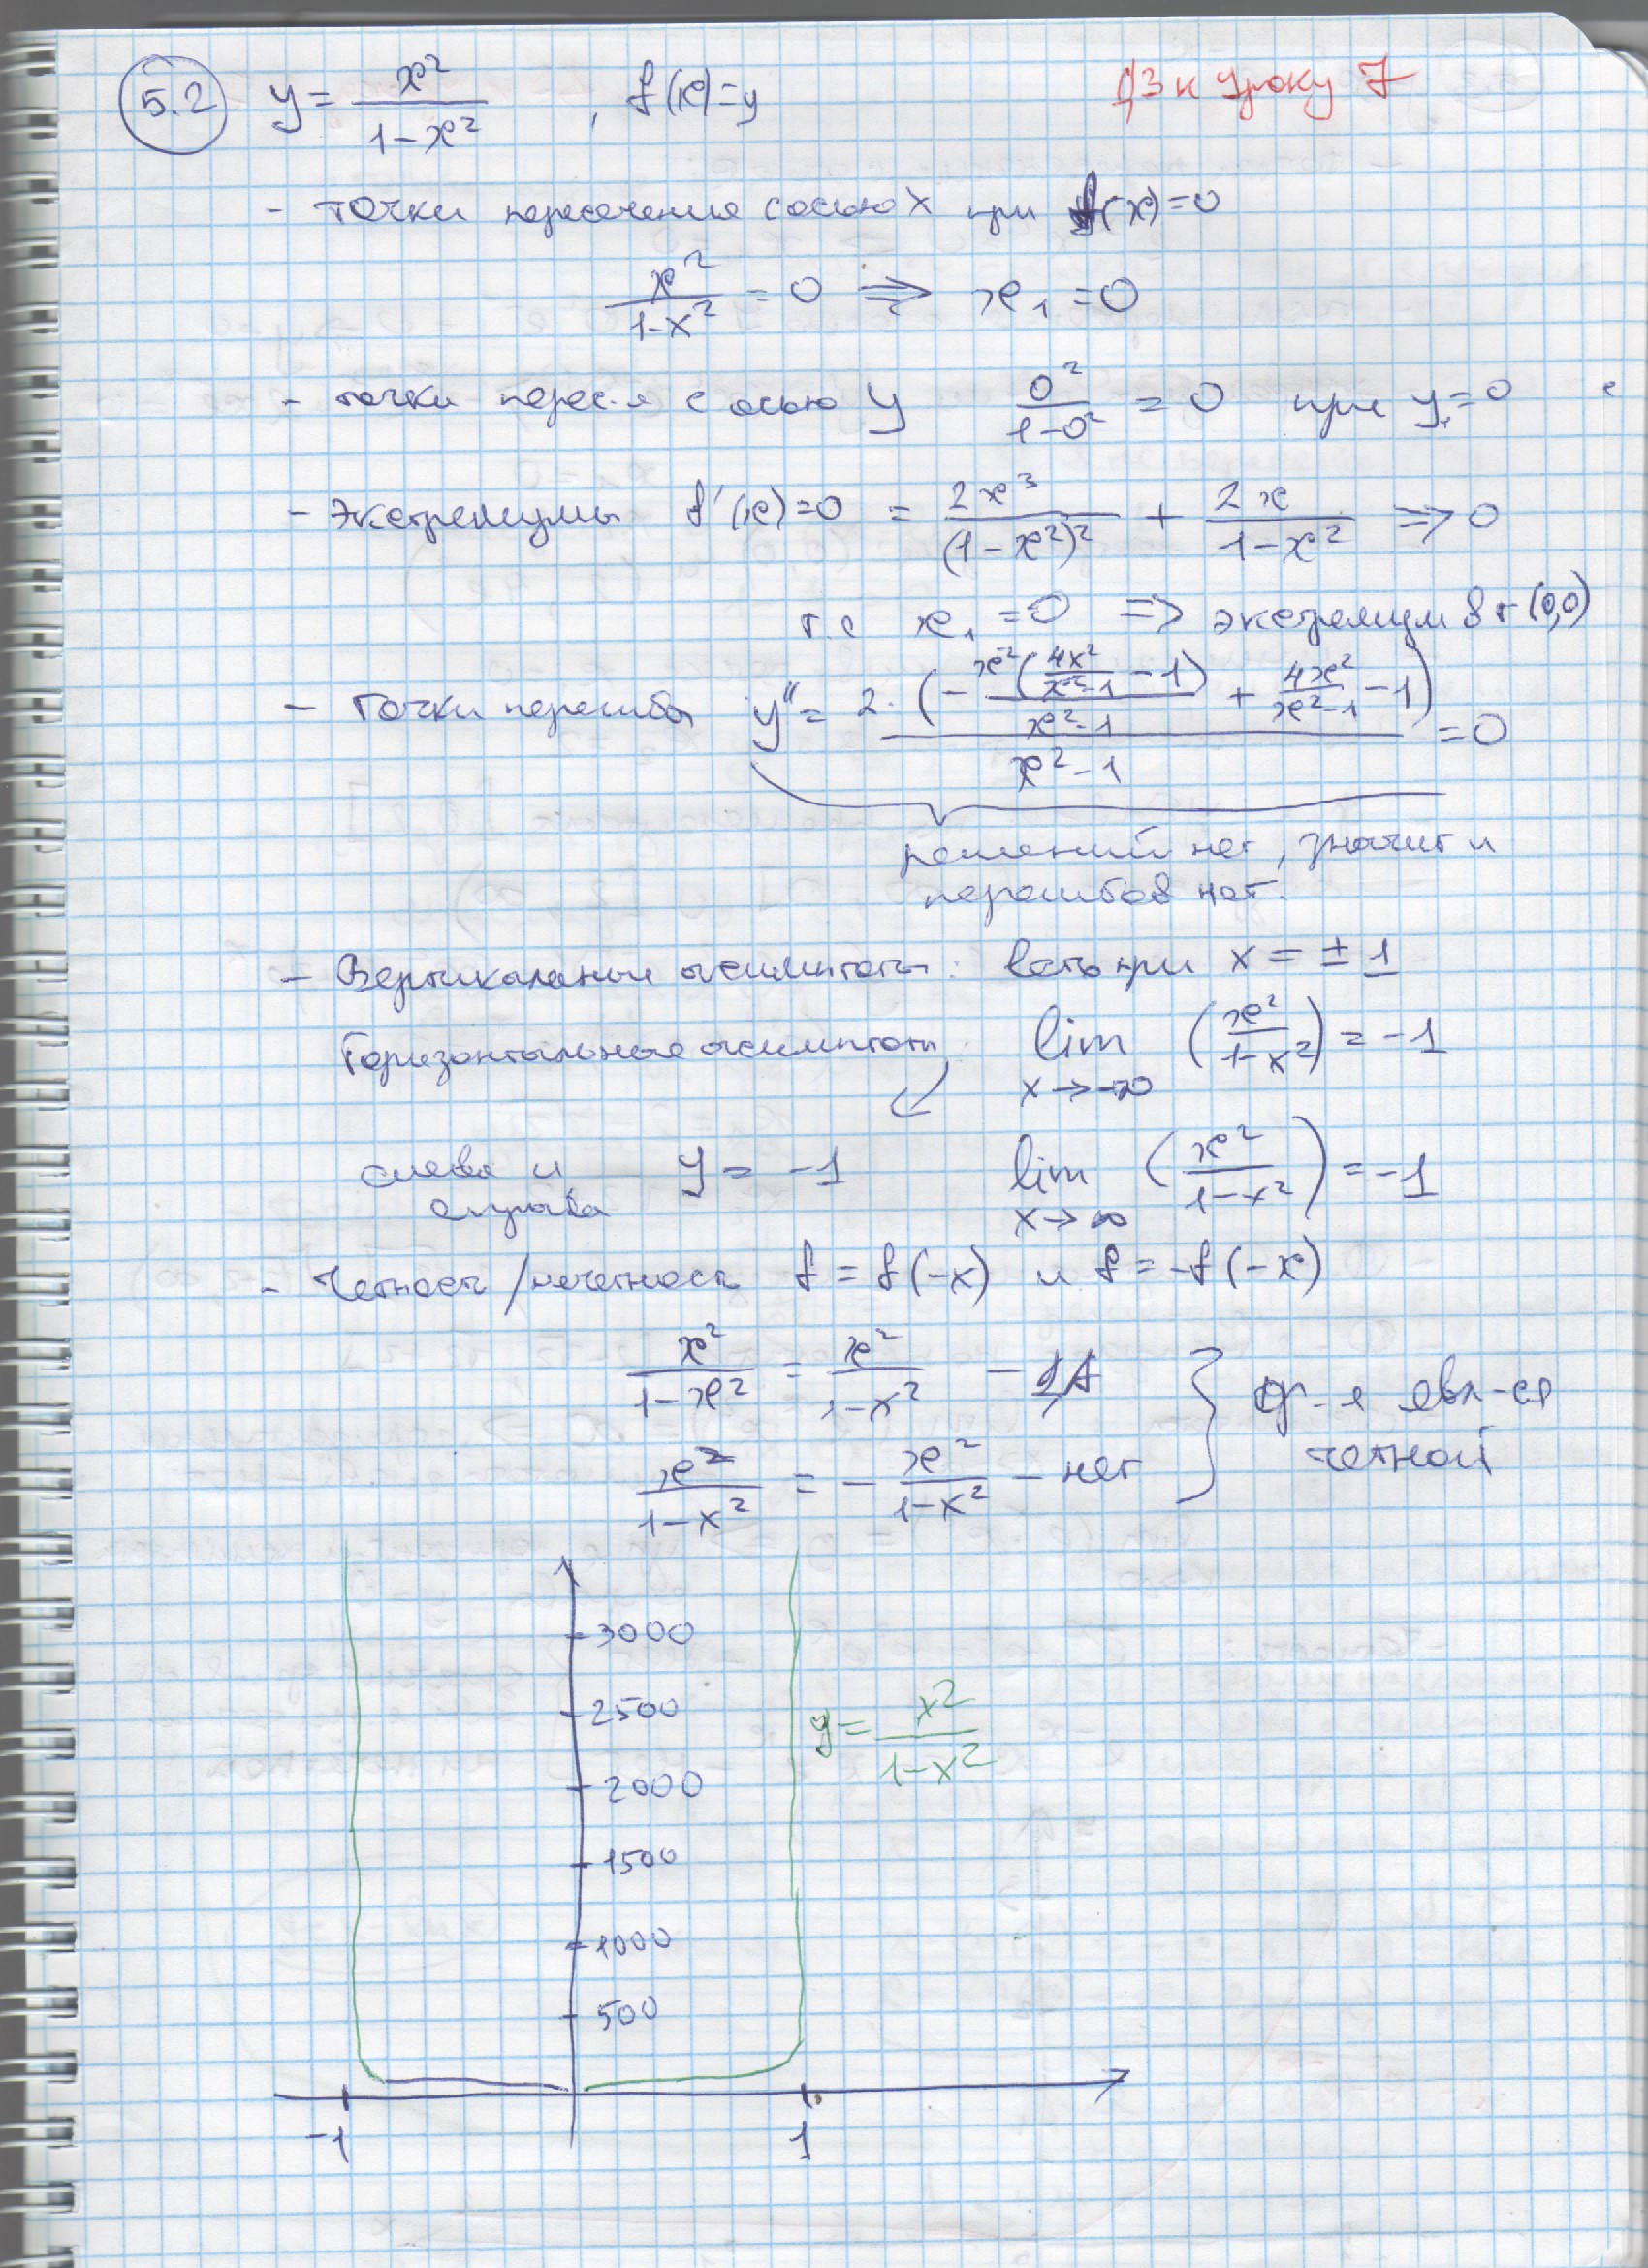 5.2 y = x²/(1-x²) , f(x)=y
ДЗ к уроку 7
- точки пересечения с осью X при f(x)=0
x²/(1-x²) = 0 => x₁ = 0
- точки перес-я с осью y 0²/(1-0²) = 0 при y₁=0
- Экстремумы f'(x)=0 = 2x³/(1-x²)² + 2x/(1-x²) => 0
т.е x₁ = 0 => экстремум в т (0,0)
- Точки перегиба y'' = 2·(-x²(4x²/(x²-1) -1)/(x²-1) + 4x²/(x²-1) -1)/(x²-1) = 0
решений нет, значит и
перегибов нет.
- Вертикальные асимптоты: есть при x = ± 1
Горизонтальные асимптоты: lim x→-∞ (x²/(1-x²)) = -1
слева и справа y = -1 lim x→∞ (x²/(1-x²)) = -1
- Четность/нечетность f = f(-x) и f = -f(-x)
x²/(1-x²) = x²/(1-x²) - ДА
x²/(1-x²) = - x²/(1-x²) - нет
ф-я явл-ся
четной
3000
2500
y = x²/(1-x²)
2000
1500
1000
500
-1 1